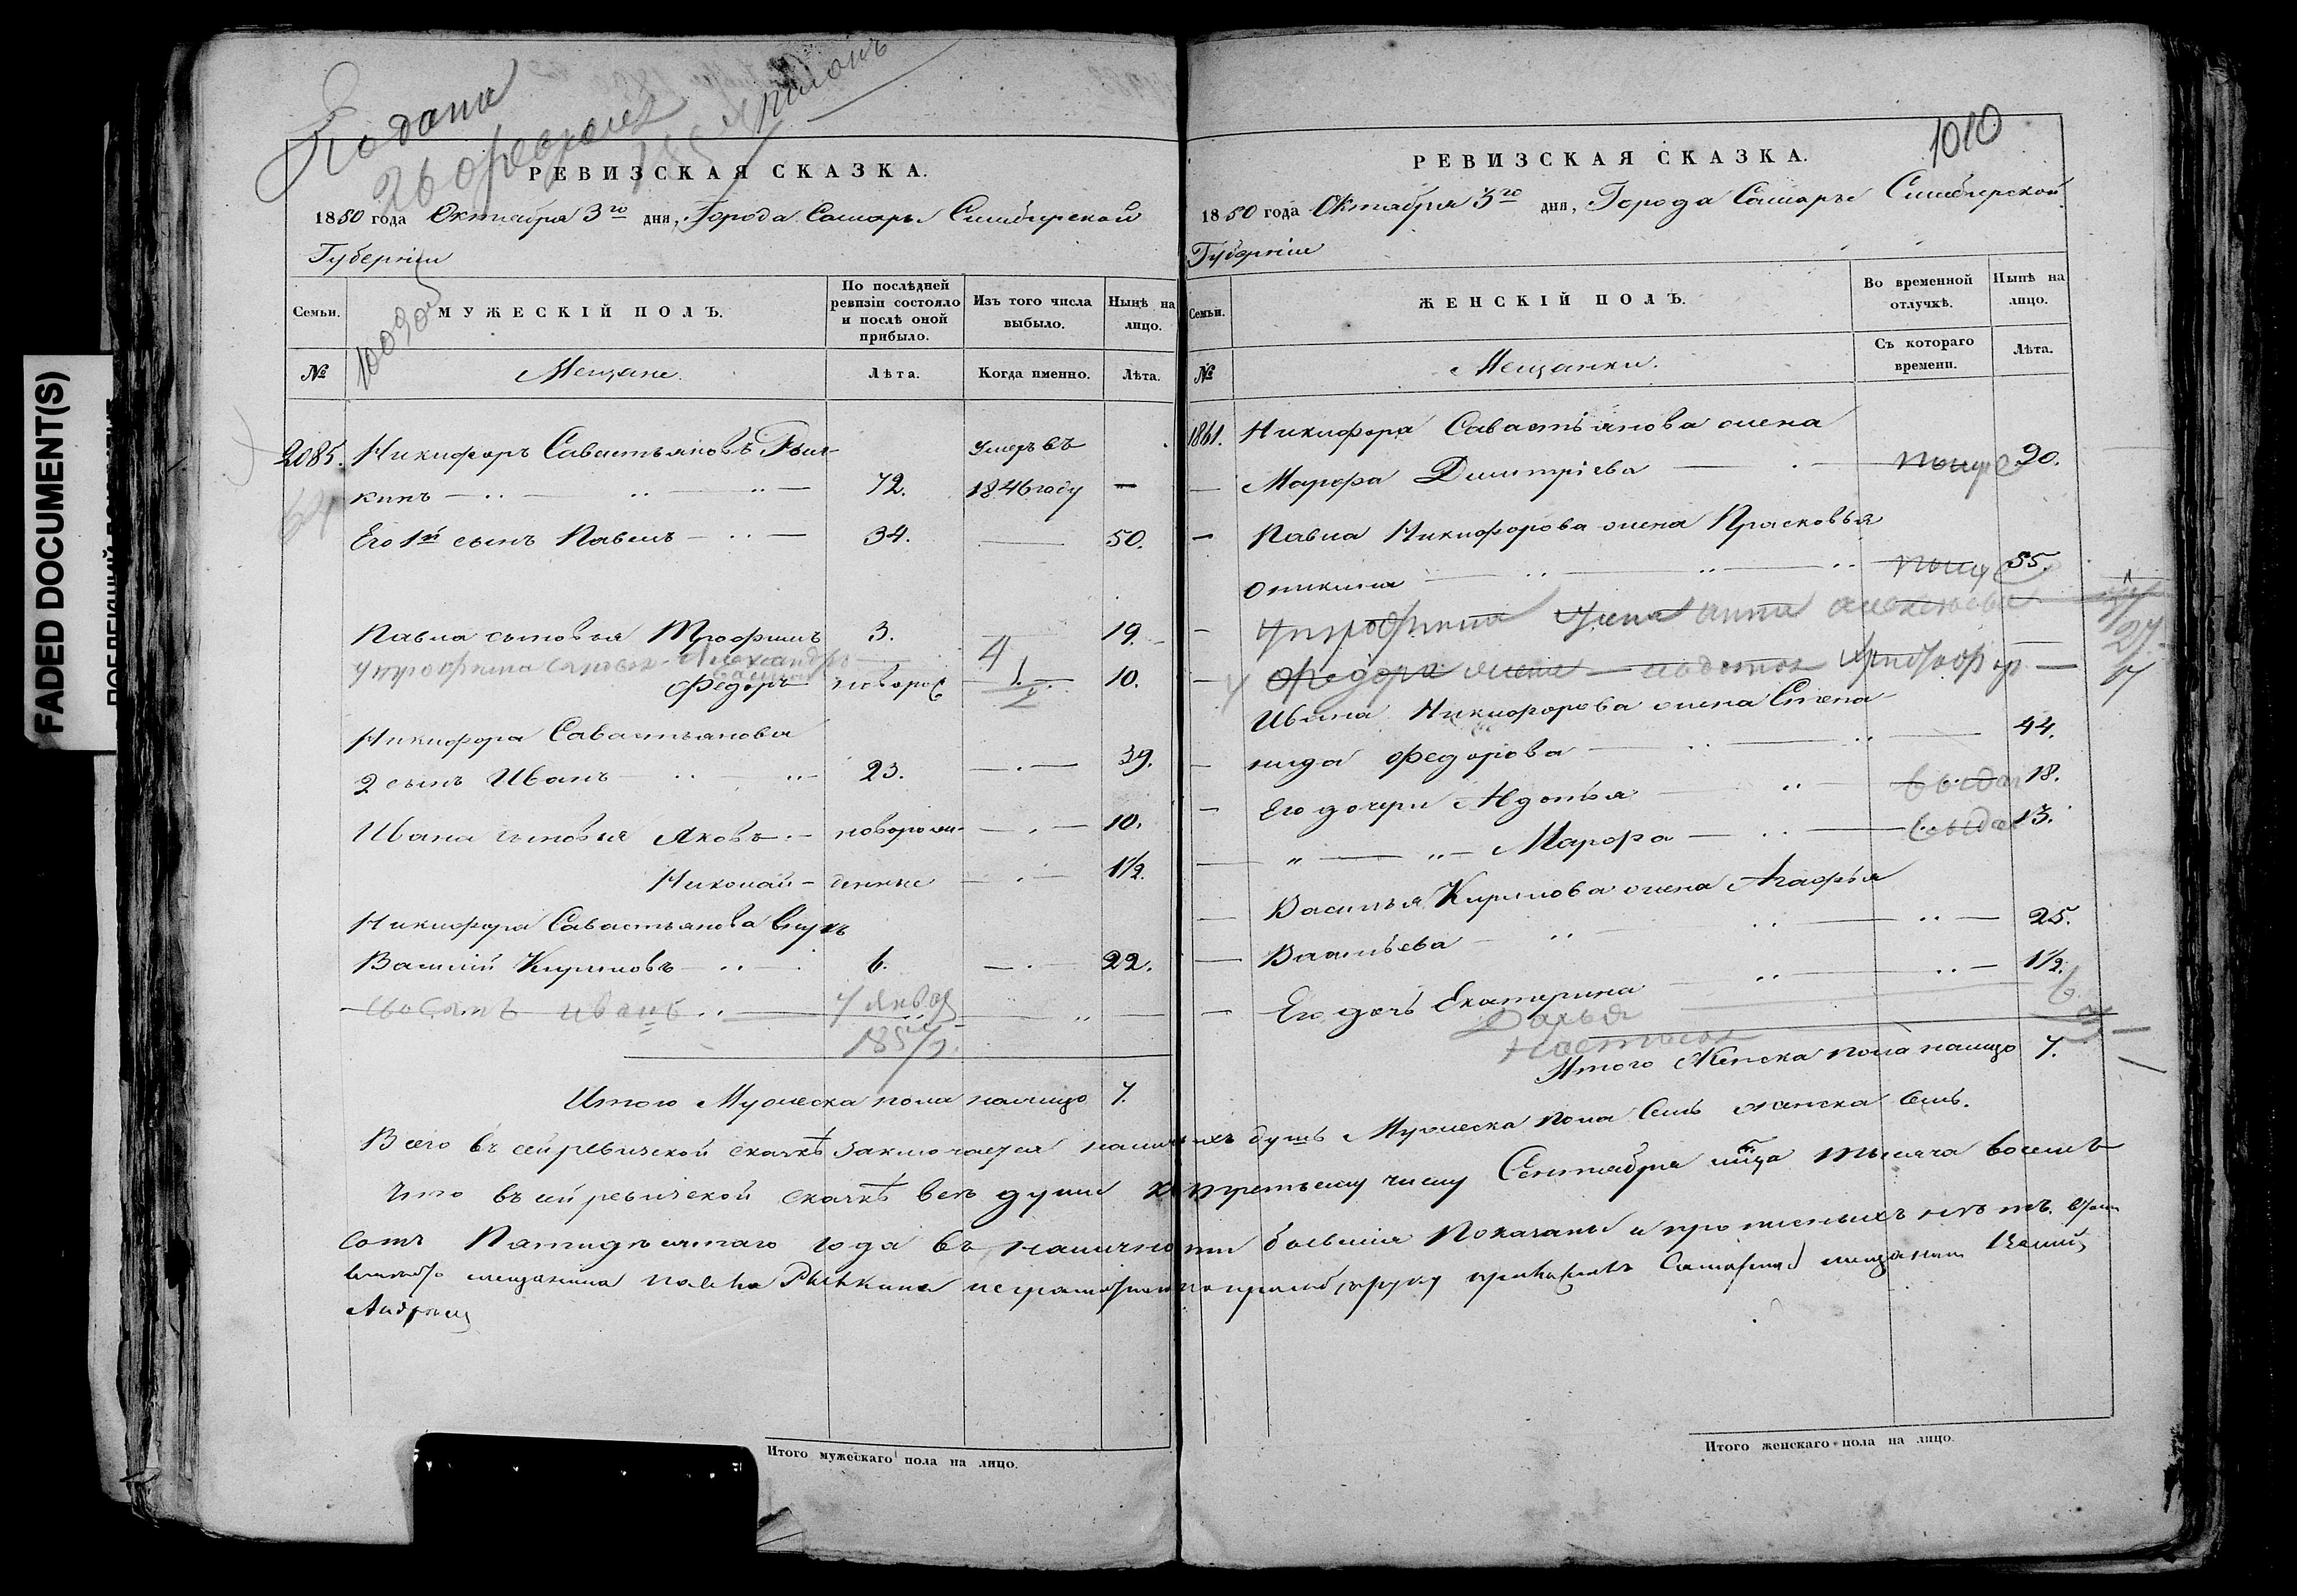 FADED DOCUMENT(S)
Подана
26 февраля
РЕВИЗСКАЯ СКАЗКА.
1850 года Октября 3го дня, Города Самары Симбирской
Губернии
Семьи.
МУЖЕСКІЙ ПОЛЪ.
По послѣдней ревизіи состояло и послѣ оной прибыло.
Изъ того числа выбыло.
Нынѣ на лицо.
№
Мещане.
Лѣта.
Когда именно.
Лѣта.
2085. Никифоръ Савастьяновъ Рыш- Умеръ въ
кинъ 72. 1846 году —
Его 1й сынъ Павелъ 34. — 50.
Павла сыновья Трофимъ 3. 19.
у трофима сынъ Александръ
Федоръ новорож 10.
Никифора Савастьянова
2 сынъ Иванъ 23. — 39.
Ивана сыновья Яковъ новорож- — 10.
Николай денные — 1½.
Никифора Савастьянова внукъ
Василий Кириловъ 6. — 22.
иванъ
185
Итого Мужеска пола налицо 7.
Итого мужескаго пола на лицо.
1010
РЕВИЗСКАЯ СКАЗКА.
1850 года Октября 3го дня, Города Самары Симбирской
Губернии
Семьи.
ЖЕНСКІЙ ПОЛЪ.
Во временной отлучкѣ.
Нынѣ на лицо.
№
Мещанки.
Съ котораго времени.
Лѣта.
1861. Никифора Савастьянова жена
Марфа Дмитріева 90.
Павла Никифорова жена Прасковья
55.
у трофима жена анна алексеева
Федора жена
27
Ивана Никифорова жена Степа-
нида Федорова 44.
Его дочери Авдотья 18.
" — " — Марфа 13.
Василья Кирилова жена Агафья
Васильева 25.
Его дочь Екатерина 1½.
Дарья 6
Настасья 3
Итого Женска пола налицо 7.
Всего въ сей ревизской сказкѣ заключается наличныхъ душъ Мужеска пола семь женска семь.
Что въ сей ревизской сказкѣ все души к третьему числу Сентября мца тысяча восемь
сотъ Пятидесятаго года въ наличности бывшия показаны и прописныхъ нетъ.
мещанина Павла Рышкина
Итого женскаго пола на лицо.